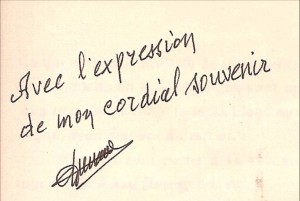 Avec l'expression
de mon cordial souvenir